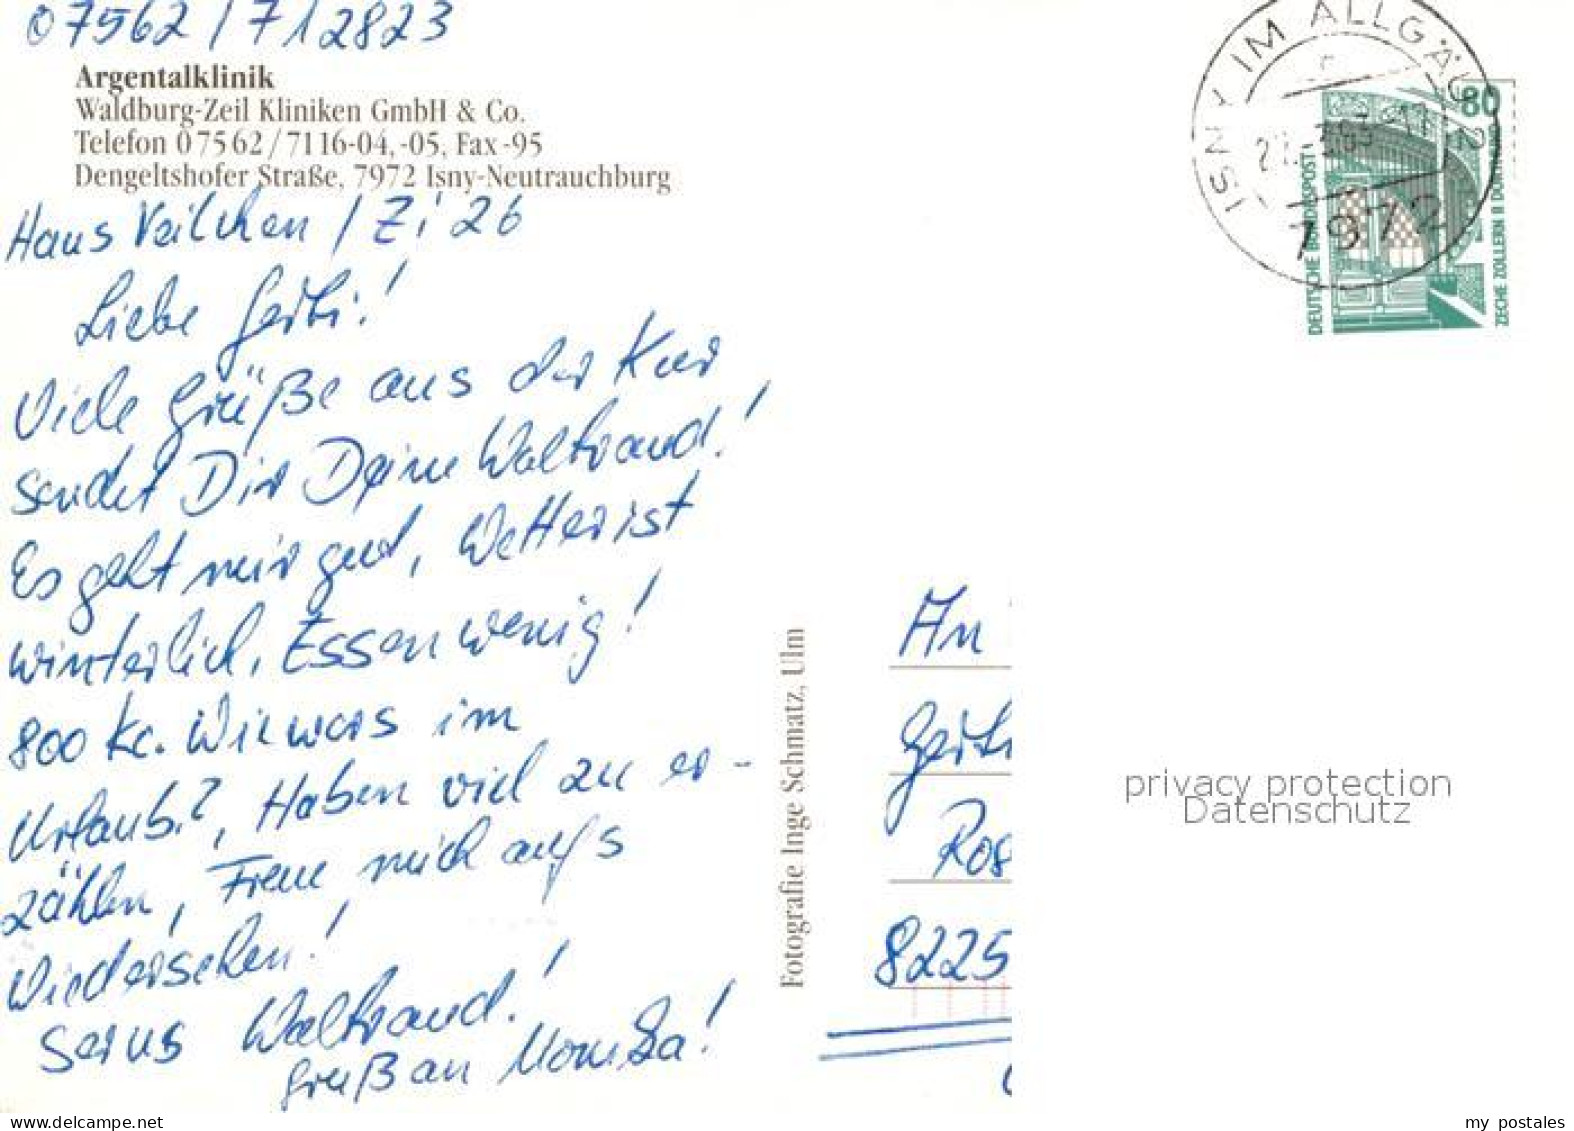 07562/712823
Argentalklinik
Waldburg-Zeil Kliniken GmbH & Co.
Telefon 07562/7116-04,-05, Fax-95
Dengeltshofer Straße, 7972 Isny-Neutrauchburg
Haus Veilchen / Zi 26
Liebe Gerti!
Viele Grüße aus der Kur
sendet Dir Deine Waltraud!
Es geht mir gut, Wetter ist
winterlich, Essen wenig!
800 kc. Wie war's im
Urlaub?, Haben viel zu er-
zählen, Freue mich auf's
Wiedersehen!
Serus Waltraud!
Gruß an Monika!
Fotografie Inge Schmatz, Ulm
An
Gerti
Ros
8225
ISNY IM ALLGÄU
7972
80
DEUTSCHE BUNDESPOST
ZECHE ZOLLERN II DORTMUND
privacy protection
Datenschutz
my postales